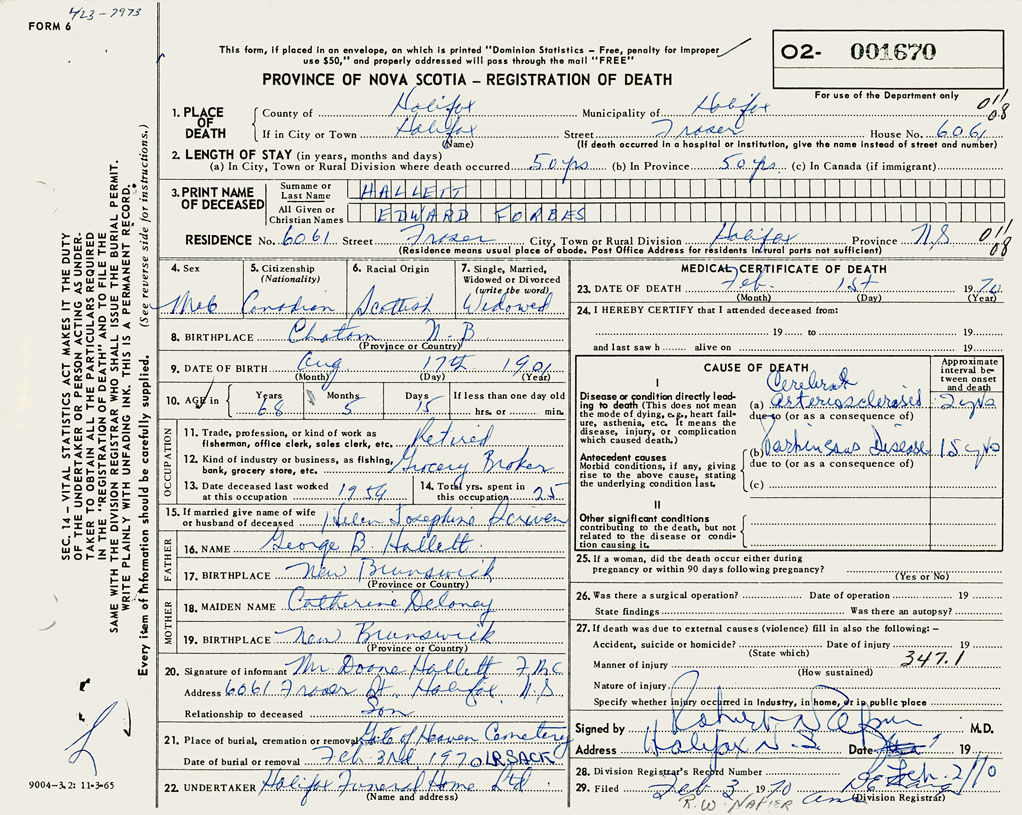 423-7973
FORM 6
This form, if placed in an envelope, on which is printed "Dominion Statistics – Free, penalty for improper
use $50," and properly addressed will pass through the mail "FREE"
02- 001670
PROVINCE OF NOVA SCOTIA – REGISTRATION OF DEATH
For use of the Department only
011
08
1. PLACE OF DEATH
County of Halifax Municipality of Halifax
If in City or Town Halifax Street Fraser House No. 6061
(Name) (If death occurred in a hospital or institution, give the name instead of street and number)
2. LENGTH OF STAY (in years, months and days)
(a) In City, Town or Rural Division where death occurred 50 yrs (b) In Province 50 yrs (c) In Canada (if immigrant)
3. PRINT NAME OF DECEASED
Surname or Last Name HALLETT
All Given or Christian Names EDWARD FORBES
RESIDENCE No. 6061 Street Fraser City, Town or Rural Division Halifax Province N.S 011
08
(Residence means usual place of abode. Post Office Address for residents in rural ports not sufficient)
4. Sex
Male
5. Citizenship
(Nationality)
Canadian
6. Racial Origin
Scottish
7. Single, Married,
Widowed or Divorced
(write the word)
Widowed
8. BIRTHPLACE Chatam N-B
(Province or Country)
9. DATE OF BIRTH Aug 17th 1901
(Month) (Day) (Year)
10. AGE in Years 68 Months 5 Days 15 If less than one day old
hrs. or min.
OCCUPATION
11. Trade, profession, or kind of work as
fisherman, office clerk, sales clerk, etc. Retired
12. Kind of industry or business, as fishing,
bank, grocery store, etc. Grocery Broker
13. Date deceased last worked
at this occupation 1954
14. Total yrs. spent in
this occupation 25
15. If married give name of wife
or husband of deceased Helen Josephine Scriven
FATHER
16. NAME George B. Hallett
17. BIRTHPLACE New Brunswick
(Province or Country)
MOTHER
18. MAIDEN NAME Catherine Deloney
19. BIRTHPLACE New Brunswick
(Province or Country)
20. Signature of informant Mr Doane Hallett
Address 6061 Fraser St. Halifax N.S
Relationship to deceased Son
21. Place of burial, cremation or removal Gate of Heaven Cemetery
Date of burial or removal Feb 3rd 1970 LR. SACK
22. UNDERTAKER Halifax Funeral Home Ltd
(Name and address)
MEDICAL CERTIFICATE OF DEATH
23. DATE OF DEATH Feb. 1st 1970
(Month) (Day) (Year)
24. I HEREBY CERTIFY that I attended deceased from:
19 to 19
and last saw h alive on 19
CAUSE OF DEATH
Approximate
interval be-
tween onset
and death
I
Disease or condition directly lead-
ing to death (This does not mean
the mode of dying, e.g., heart fail-
ure, asthenia, etc. It means the
disease, injury, or complication
which caused death.)
Cerebral
(a) Arteriosclerosis 2 yrs
due to (or as a consequence of)
Antecedent causes
Morbid conditions, if any, giving
rise to the above cause, stating
the underlying condition last.
(b) Parkinsons Disease 15 yrs
due to (or as a consequence of)
(c)
II
Other significant conditions
contributing to the death, but not
related to the disease or condi-
tion causing it.
25. If a woman, did the death occur either during
pregnancy or within 90 days following pregnancy?
(Yes or No)
26. Was there a surgical operation? Date of operation 19
State findings Was there an autopsy?
27. If death was due to external causes (violence) fill in also the following: –
Accident, suicide or homicide? Date of injury 19
(State which)
347.1
Manner of injury
(How sustained)
Nature of injury
Specify whether injury occurred in Industry, in home, or in public place
Signed by Robert M.D.
Address Halifax N.S Date 19
28. Division Registrar's Record Number
29. Filed Feb 3 1970
(Division Registrar)
R.W. NAPIER
SEC. 14 – VITAL STATISTICS ACT MAKES IT THE DUTY
OF THE UNDERTAKER OR PERSON ACTING AS UNDER-
TAKER TO OBTAIN ALL THE PARTICULARS REQUIRED
IN THE "REGISTRATION OF DEATH" AND TO FILE THE
SAME WITH THE DIVISION REGISTRAR WHO SHALL ISSUE THE BURIAL PERMIT.
WRITE PLAINLY WITH UNFADING INK. THIS IS A PERMANENT RECORD.
Every item of information should be carefully supplied. (See reverse side for instructions.)
9004-3.2: 11-3-65